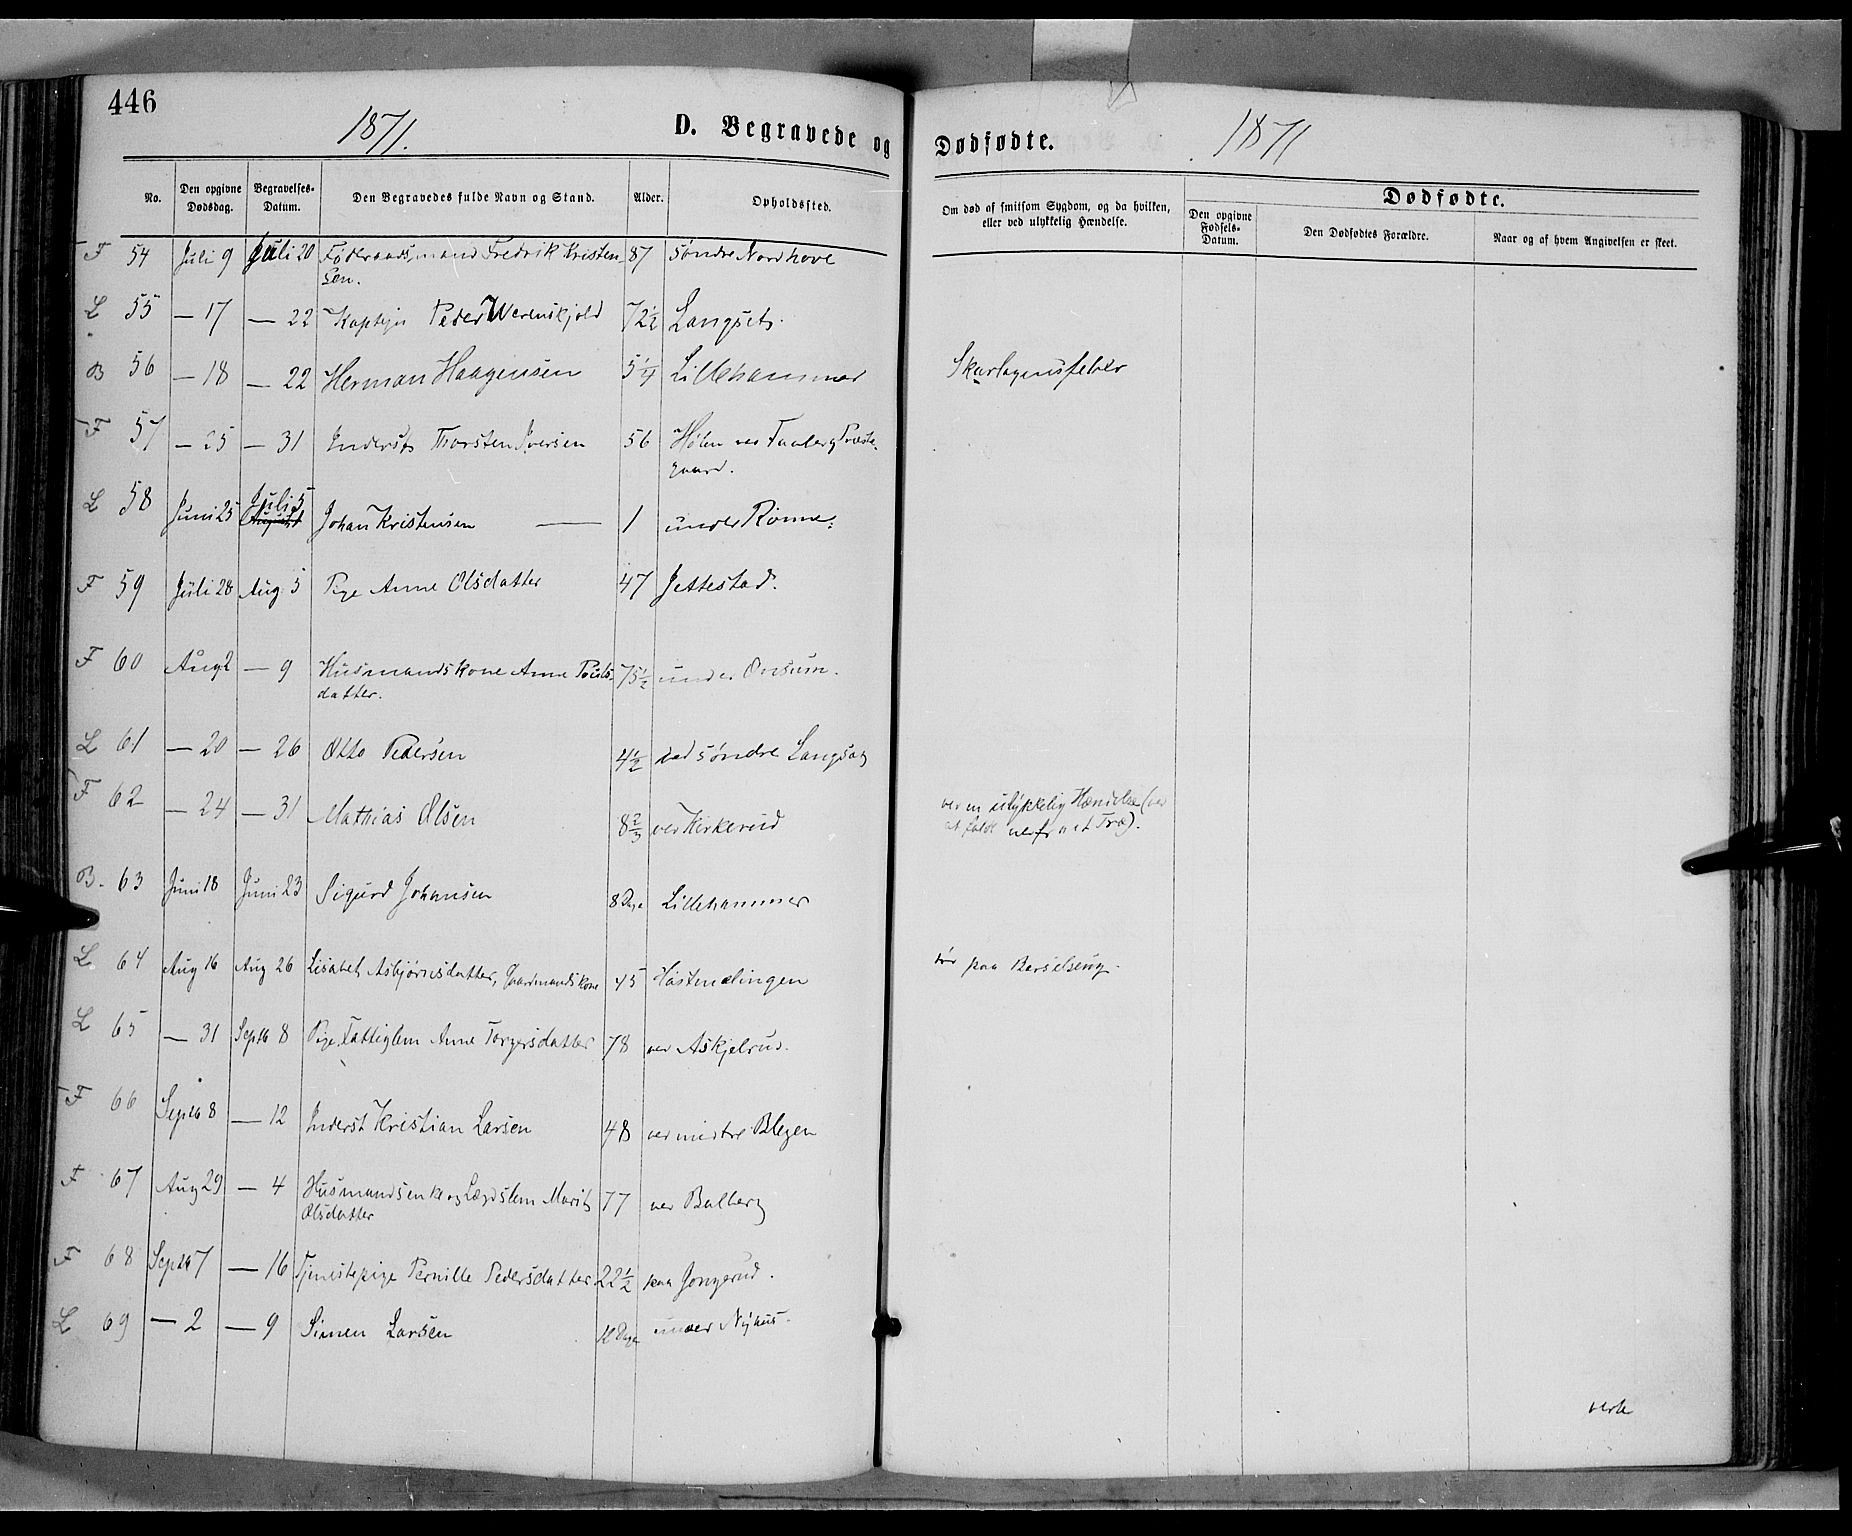 446
1871.
D. Begravede og Dødfødte.
1871
No.
Den opgivne Dødsdag.
Begravelses-Datum.
Den Begravedes fulde Navn og Stand.
Alder.
Opholdssted.
Om død af smitsom Sygdom, og da hvilken, eller ved ulykkelig Hændelse.
Dødfødte.
Den opgivne Fødsels-Datum.
Den Dødfødtes Forældre.
Naar og af hvem Angivelsen er skeet.
F 54 Juli 9 Juli 20 Føderaadsmand Fredrik Kristen- 87 søndre Nordhove
sen.
L 55 — 17 — 22 Kaptejn Peder Werenskjold 72 1/2 Langset.
B 56 — 18 — 22 Herman Haagensen 5 1/4 Lillehammer Skarlagensfeber
F 57 — 25 — 31 Inderst Thorsten Iversen 56 Hølen ved Faaberg Præste-
gaard.
L 58 Juni 25 Juli 5 Johan Kristensen — 1 under Rønne.
F 59 Juli 28 Aug 5 Pige Anne Olsdatter 47 Jettestad.
F 60 Aug 2 — 9 Husmandskone Anne Pouls- 75 1/2 under Onsum.
datter.
L 61 — 20 — 26 Otto Pedersen 4 1/2 ved søndre
F 62 — 24 — 31 Mathias Olsen 8 2/3 ved Kirkerud ved en ulykkelig Hændelse (ved
at falde ned fra et Træ).
B. 63 Juni 18 Juni 23 Sigurd Johansen 8 Dage Lillehammer
L 64 Aug 16 Aug 26 Lisabet Asbjørnsdatter, Gaardmandskone 45 Hostmælingen paa Barselseng.
L 65 — 31 Septb 8 Pige, Fattiglem Anne Torgersdatter 78 ved Askjelrud.
F 66 Septb 8 — 12 Inderst Kristian Larsen 48 ved midtre Blegen
F 67 Aug 29 — 4 Husmandsenke og Lægdslem Marit 77 ved Balberg
Olsdatter
F 68 Septb 7 — 16 Tjenestepige Pernille Pedersdatter 22 1/2 paa Jongerud.
L 69 — 2 — 9 Simen Larsen 12 Dage under Nyhus.